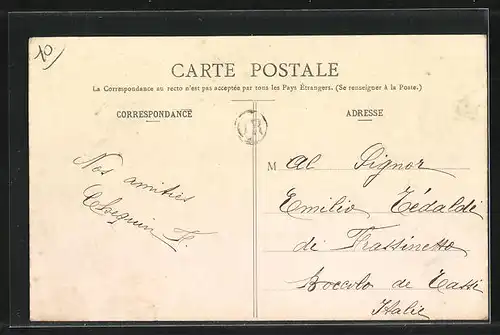 10
CARTE POSTALE
La Correspondance au recto n'est pas acceptée par tous les Pays Étrangers. (Se renseigner à la Poste.)
CORRESPONDANCE
ADRESSE
OR
Nos amitiés
F.
M Al Signor
Emilio Tédaldi
de Frassinetto
Boccolo de Tassi
Italie